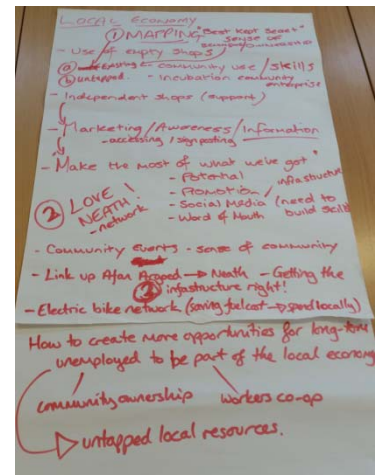 LOCAL ECONOMY
① MAPPING "Best Kept Secret"
sense of
- Use of empty shops
ⓐ Existing community use / skills
ⓑ untapped. - Incubation community
enterprise
- Independent shops (support)
- Marketing / Awareness / Information
- accessing / signposting
- Make the most of what we've got"
- Potential infrastructure
② LOVE NEATH! - Promotion /
- network - Social Media (need to
build skills)
- Word of Mouth
- Community Events - sense of community
- Link up Afan Argoed → Neath - Getting the
③ infastructure right!
- Electric bike network (saving fuel cost → spend locally)
How to create more opportunities for long-term
unemployed to be part of the local economy
community ownership workers co-op
untapped local resources.